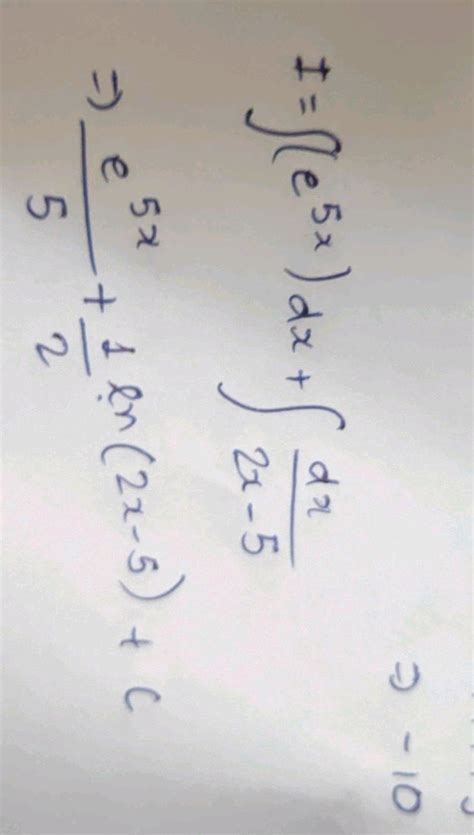 ⇒ -10
I = ∫(e^{5x})dx + ∫ dx/(2x-5)
⇒ e^{5x}/5 + 1/2 ln(2x-5) + C